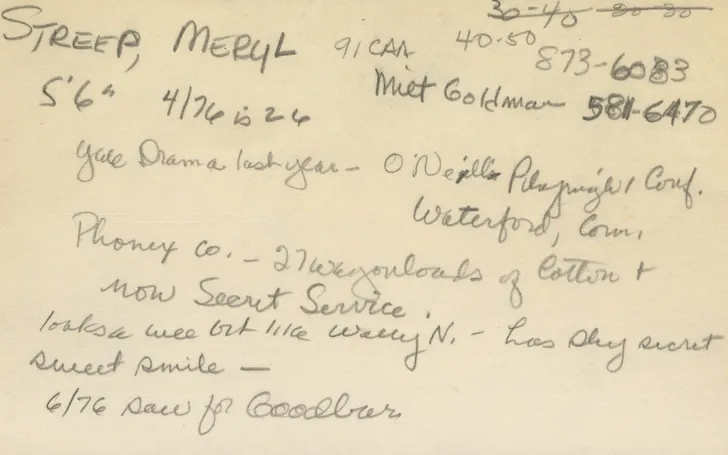 30-40 20-30
STREEP, MERYL 91 CAA 40-50
873-6083
5'6" 4/76 is 26 Milt Goldman 581-6470
Yale Drama last year - O'Neill's Playwright Conf.
Waterford, Conn.
Phonex co. - 27 wagonloads of Cotton +
now Secret Service.
looks a wee bit like Wally N. - has shy secret
sweet smile -
6/76 saw for Goodbar